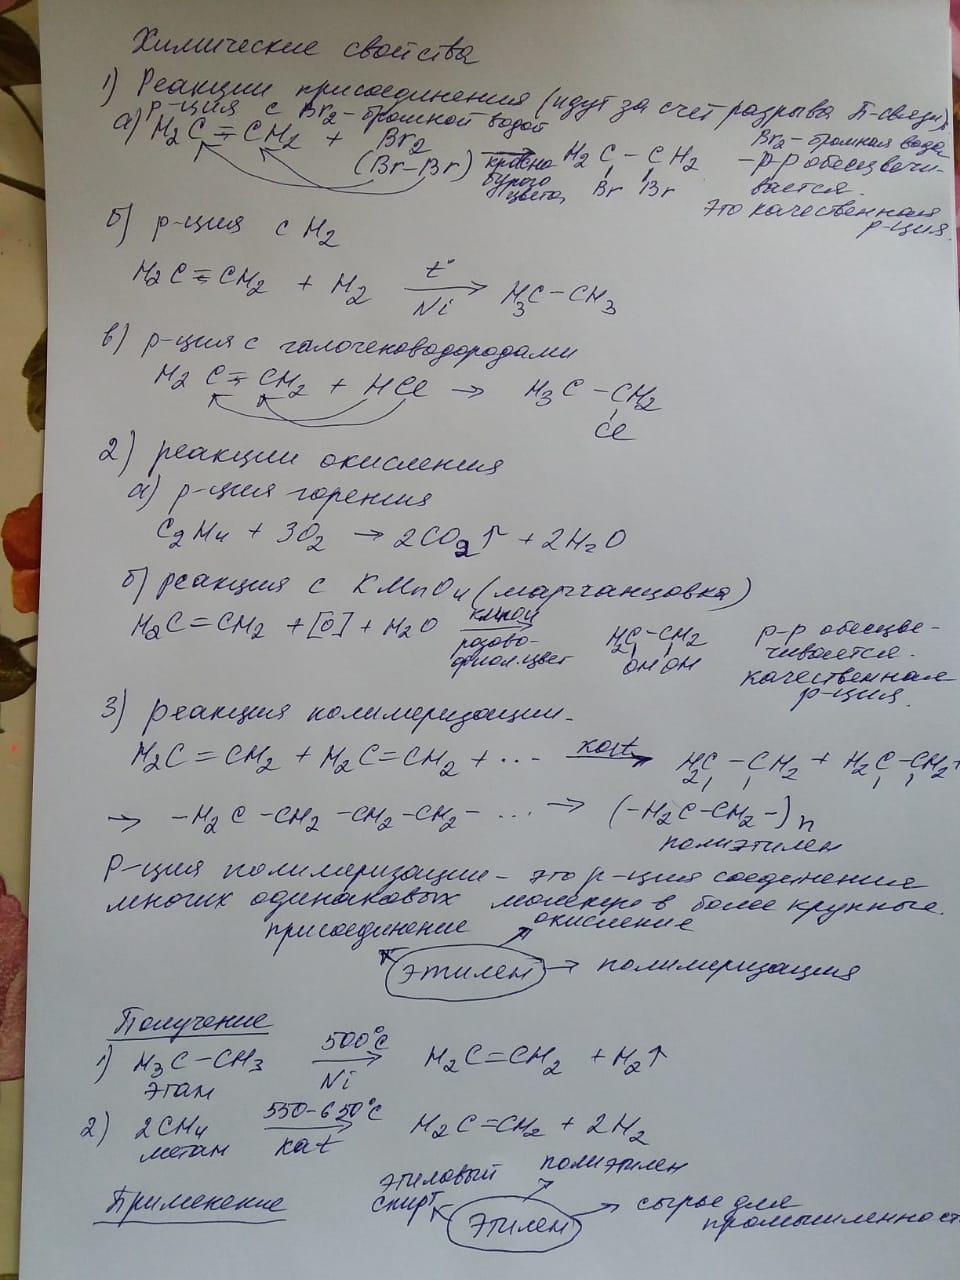 Химические свойства
1) Реакции присоединения (идут за счет разрыва П-связи)
р-ция с Br2-бромной водой
а) H2C=CH2 + Br2 → H2C-CH2
(Br-Br) красно бурого цвета Br Br
Br2-бромная вода
-р-р обесцвечи-
вается.
Это качественная
р-ция.
б) р-ция с H2
H2C=CH2 + H2 t° → Ni H3C-CH3
в) р-ция с галогеноводородами
H2C=CH2 + HCl → H3C-CH2
Cl
2) реакции окисления
а) р-ция горения
C2H4 + 3O2 → 2CO2↑ + 2H2O
б) реакция с KMnO4 (марганцовка)
H2C=CH2 + [O] + H2O KMnO4 → H2C-CH2
розово-
фиол.цвет OH OH
р-р обесцве-
чивается.
качественная
р-ция.
3) реакция полимеризации.
H2C=CH2 + H2C=CH2 + ... kat → H2C-CH2 + H2C-CH2+
→ -H2C-CH2-CH2-CH2- ... → (-H2C-CH2-)n
полиэтилен
Р-ция полимеризации - это р-ция соединения
многих одинаковых молекул в более крупные.
присоединение окисление
этилен → полимеризация
Получение
1) H3C-CH3 500°C → Ni H2C=CH2 + H2↑
этан
2) 2CH4 550-650°C → kat H2C=CH2 + 2H2
метан
Применение этиловый спирт полиэтилен
Этилен → сырье для
промышленност